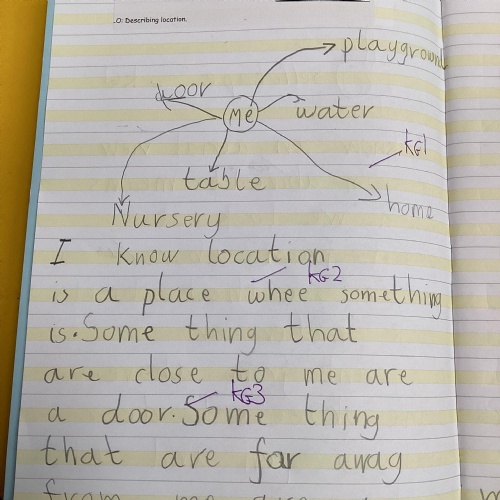 LO: Describing location.
playground
door
me
water
KG1
table
home
Nursery
I know location
is a place whee something
KG2
is. Some thing that
are close to me are
KG3
a door. Some thing
that are far away
from me are